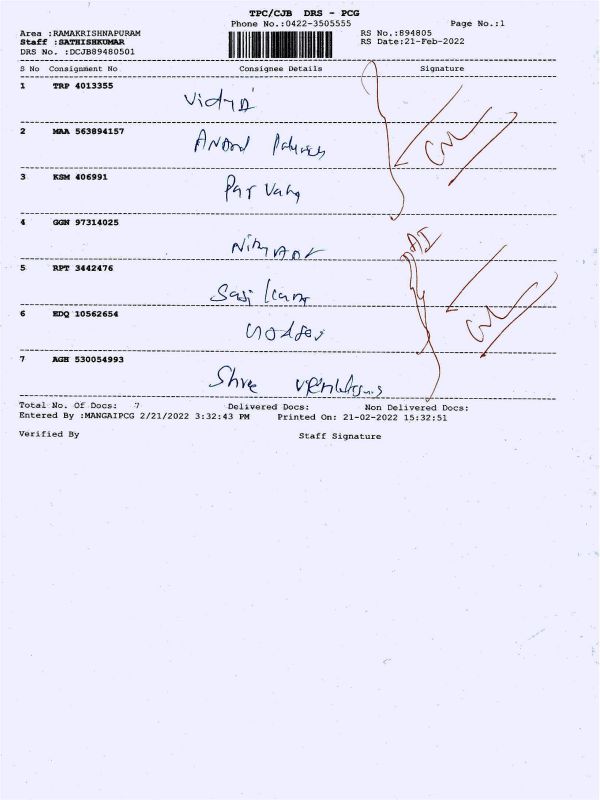 TPC/CJB DRS - PCG
Phone No.:0422-3505555 Page No.:1
Area :RAMAKRISHNAPURAM RS No.:894805
Staff :SATHISHKUMAR RS Date:21-Feb-2022
DRS No. :DCJB89480501
S No Consignment No Consignee Details Signature
1 TRP 4013355
Vidya
2 MAA 563894157
Anand
3 KSM 406991
4 GGN 97314025
5 RPT 3442476
6 EDQ 10562654
7 AGH 530054993
Shree
Total No. Of Docs: 7 Delivered Docs: Non Delivered Docs:
Entered By :MANGAIPCG 2/21/2022 3:32:43 PM Printed On: 21-02-2022 15:32:51
Verified By Staff Signature